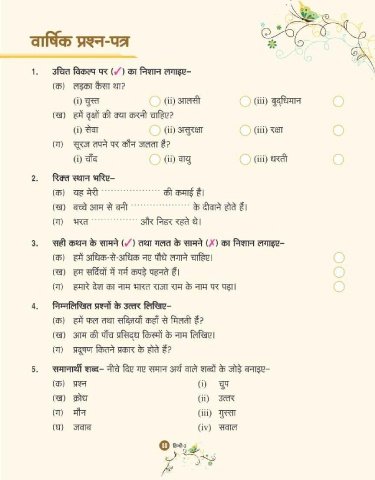 वार्षिक प्रश्न-पत्र
1. उचित विकल्प पर (✓) का निशान लगाइए–
(क) लड़का कैसा था?
(i) चुस्त (ii) आलसी (iii) बुद्धिमान
(ख) हमें वृक्षों की क्या करनी चाहिए?
(i) सेवा (ii) असुरक्षा (iii) रक्षा
(ग) सूरज तपने पर कौन जलता है?
(i) चाँद (ii) वायु (iii) धरती
2. रिक्त स्थान भरिए–
(क) यह मेरी .................... की कमाई है।
(ख) बच्चे आम से बनी .................... के दीवाने होते हैं।
(ग) भरत .................... और निडर रहते थे।
3. सही कथन के सामने (✓) तथा गलत के सामने (✗) का निशान लगाइए–
(क) हमें अधिक-से-अधिक नए पौधे लगाने चाहिए।
(ख) हम सर्दियों में गर्म कपड़े पहनते हैं।
(ग) हमारे देश का नाम भारत राजा राम के नाम पर पड़ा।
4. निम्नलिखित प्रश्नों के उत्तर लिखिए–
(क) हमें फल तथा सब्ज़ियाँ कहाँ से मिलती हैं?
(ख) आम की पाँच प्रसिद्ध किस्मों के नाम लिखिए।
(ग) प्रदूषण कितने प्रकार के होते हैं?
5. समानार्थी शब्द– नीचे दिए गए समान अर्थ वाले शब्दों के जोड़े बनाइए–
(क) प्रश्न (i) चुप
(ख) क्रोध (ii) उत्तर
(ग) मौन (iii) गुस्सा
(घ) जवाब (iv) सवाल
88 हिन्दी-3